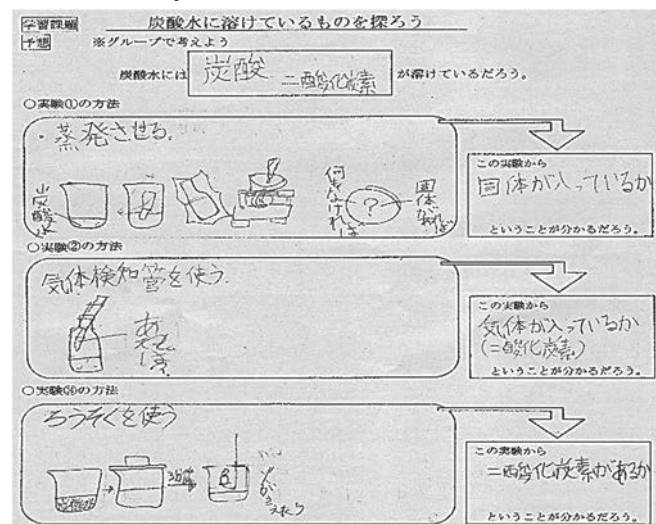 学習課題 炭酸水に溶けているものを探ろう
予想 ※グループで考えよう
炭酸水には 炭酸 二酸化炭素 が溶けているだろう。
○実験①の方法
・蒸発させる。
炭酸水
何もなければ
?
固体があれば
この実験から
固体が入っているか
ということが分かるだろう。
○実験②の方法
気体検知管を使う。
あ
この実験から
気体が入っているか
(二酸化炭素)
ということが分かるだろう。
○実験③の方法
ろうそくを使う
炭酸水
火がきえたら
この実験から
二酸化炭素があるか
ということが分かるだろう。